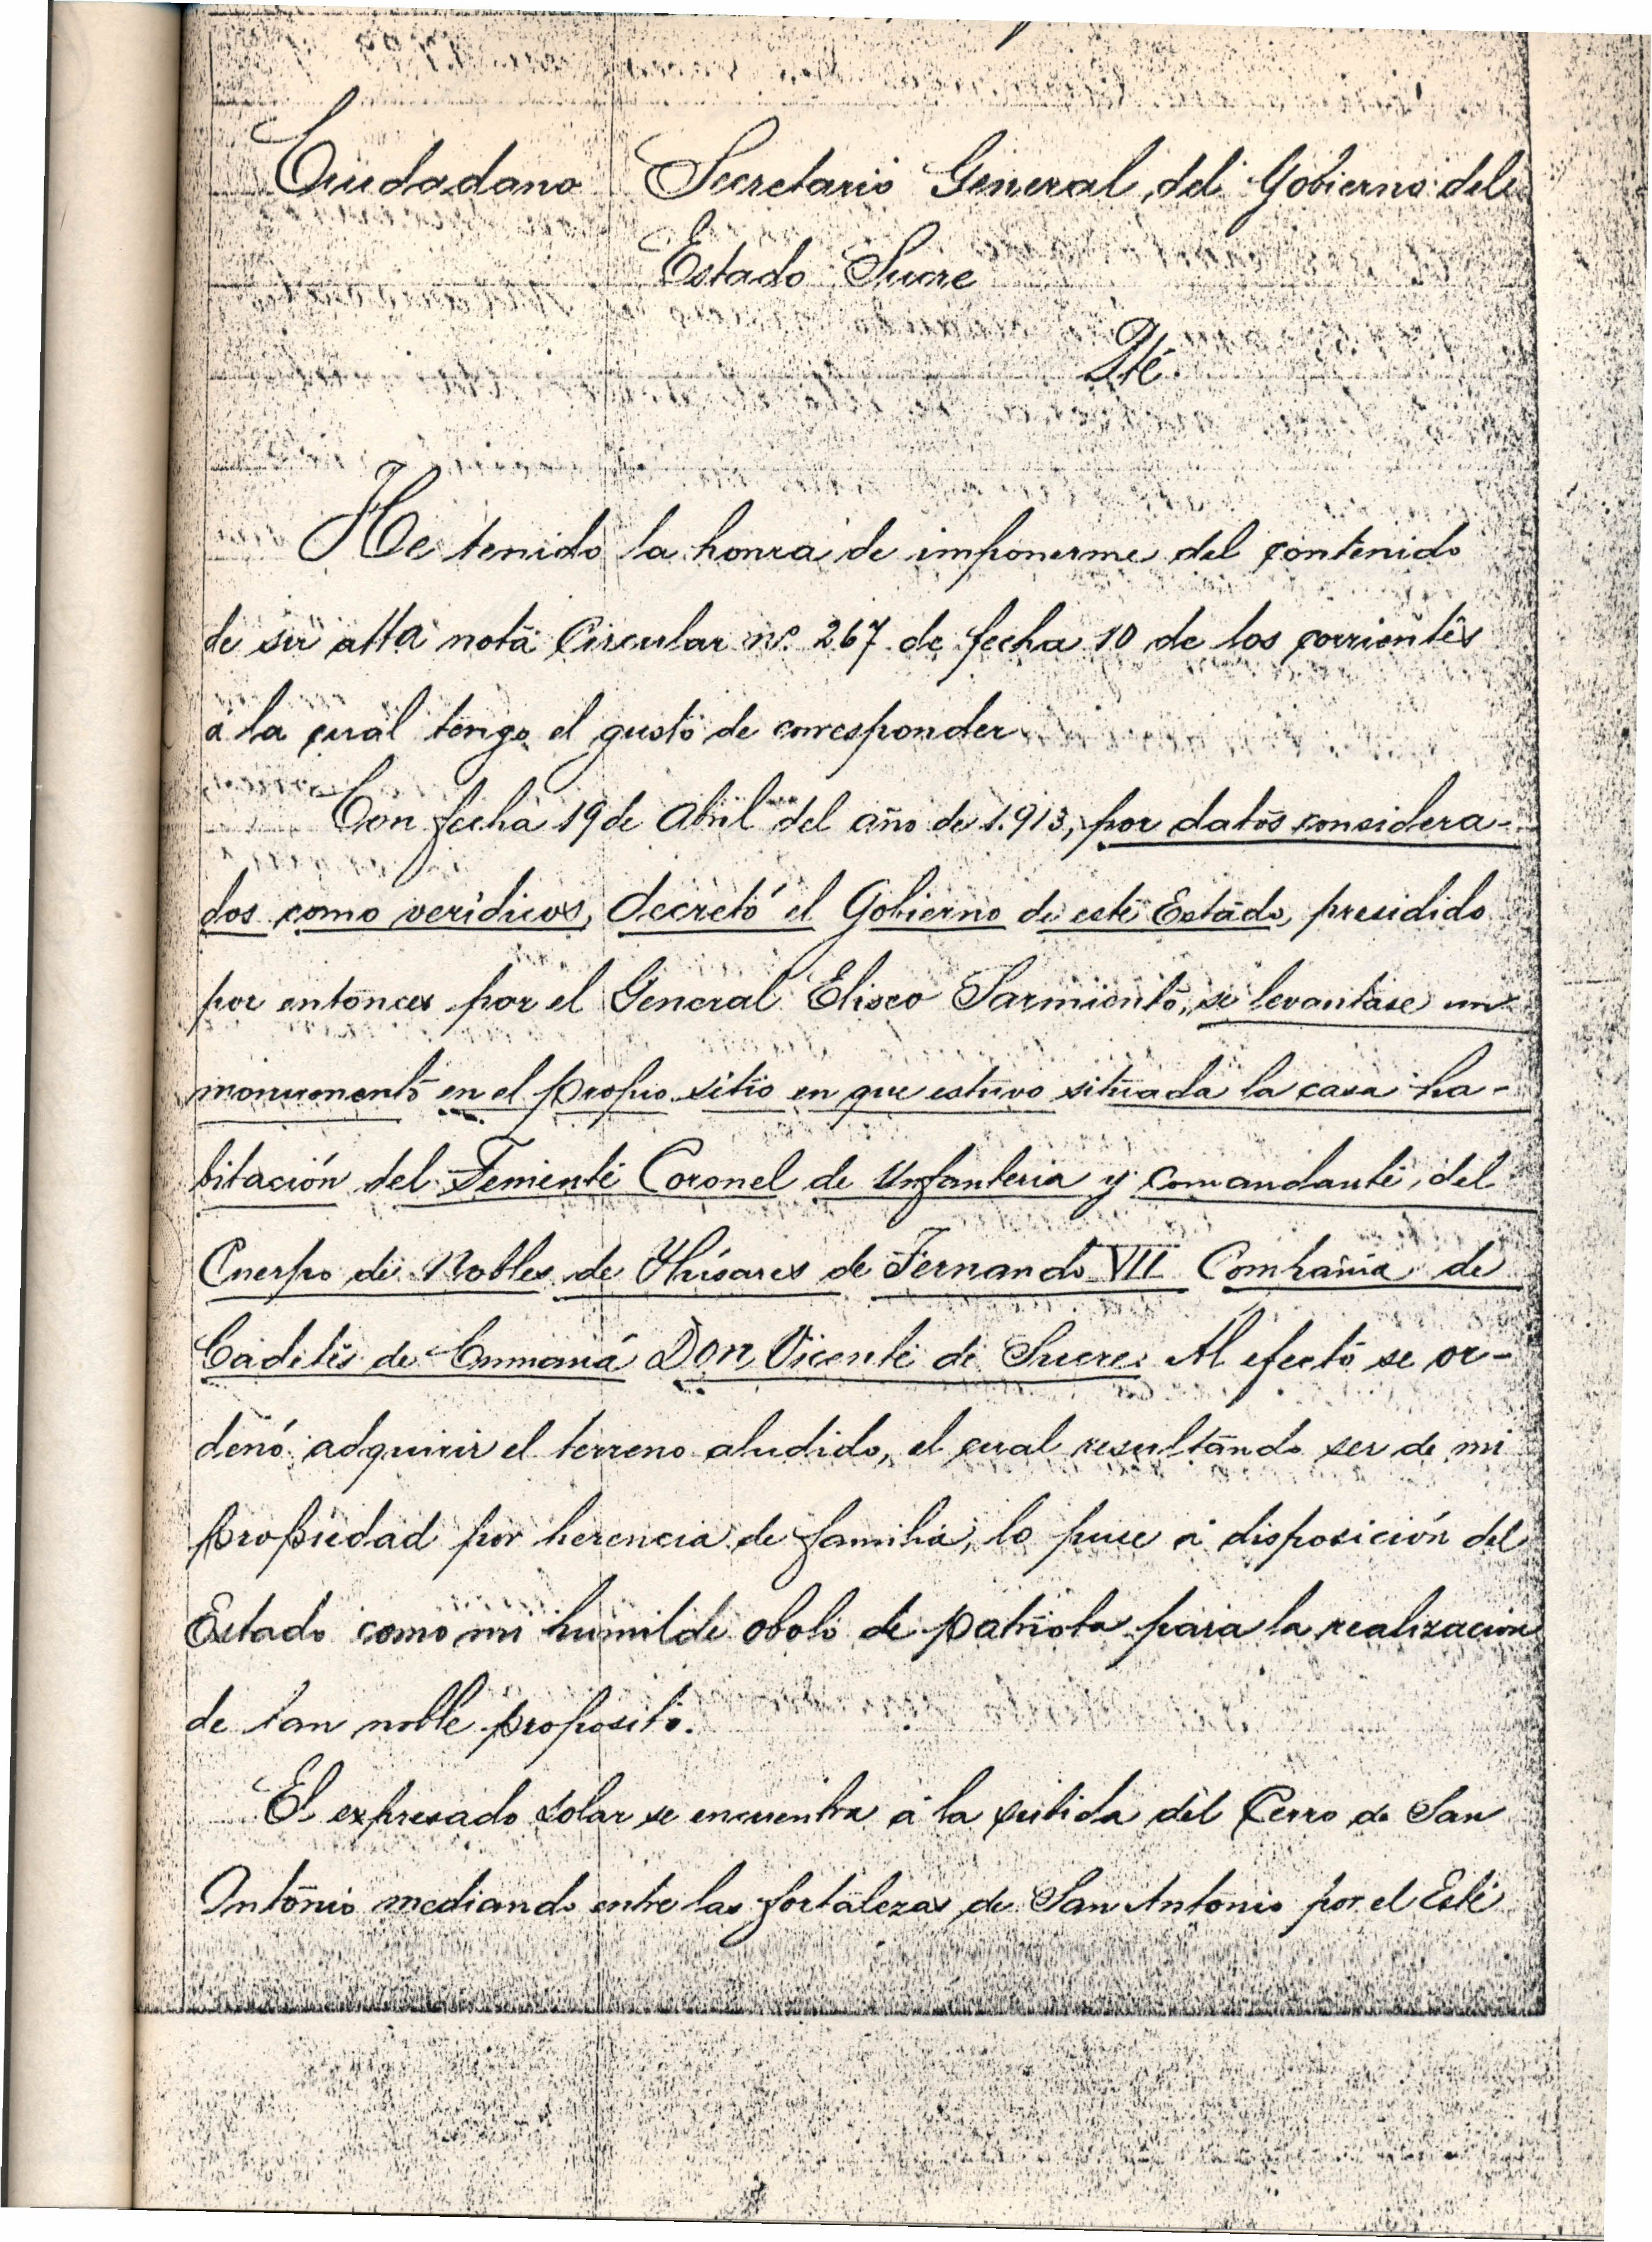 Ciudadano Secretario General del Gobierno del
Estado Sucre
Pté.
He tenido la honra de imponerme del contenido
de su atta nota Circular nº. 267 de fecha 10 de los corrientes
a la cual tengo el gusto de corresponder.
Con fecha 19 de Abril del año de 1.913, por datos considera-
dos como verídicos, decretó el Gobierno de este Estado, presidido
por entonces por el General Eliseo Sarmiento, se levantase un
monumento en el propio sitio en que estuvo situada la casa ha-
bitación del Teniente Coronel de Infanteria y Comandante, del
Cuerpo de Nobles de Húsares de Fernando VII Compañia de
Cadetes de Cumaná Don Vicente de Sucre. Al efecto se or-
denó adquirir el terreno aludido, el cual resultando ser de mi
propiedad por herencia de familia, lo puse a disposición del
Estado como mi humilde obolo de patriota para la realizacion
de tan noble proposito.
El expresado solar se encuentra a la subida del Cerro de San
Antonio mediando entre las fortalezas de San Antonio por el Este